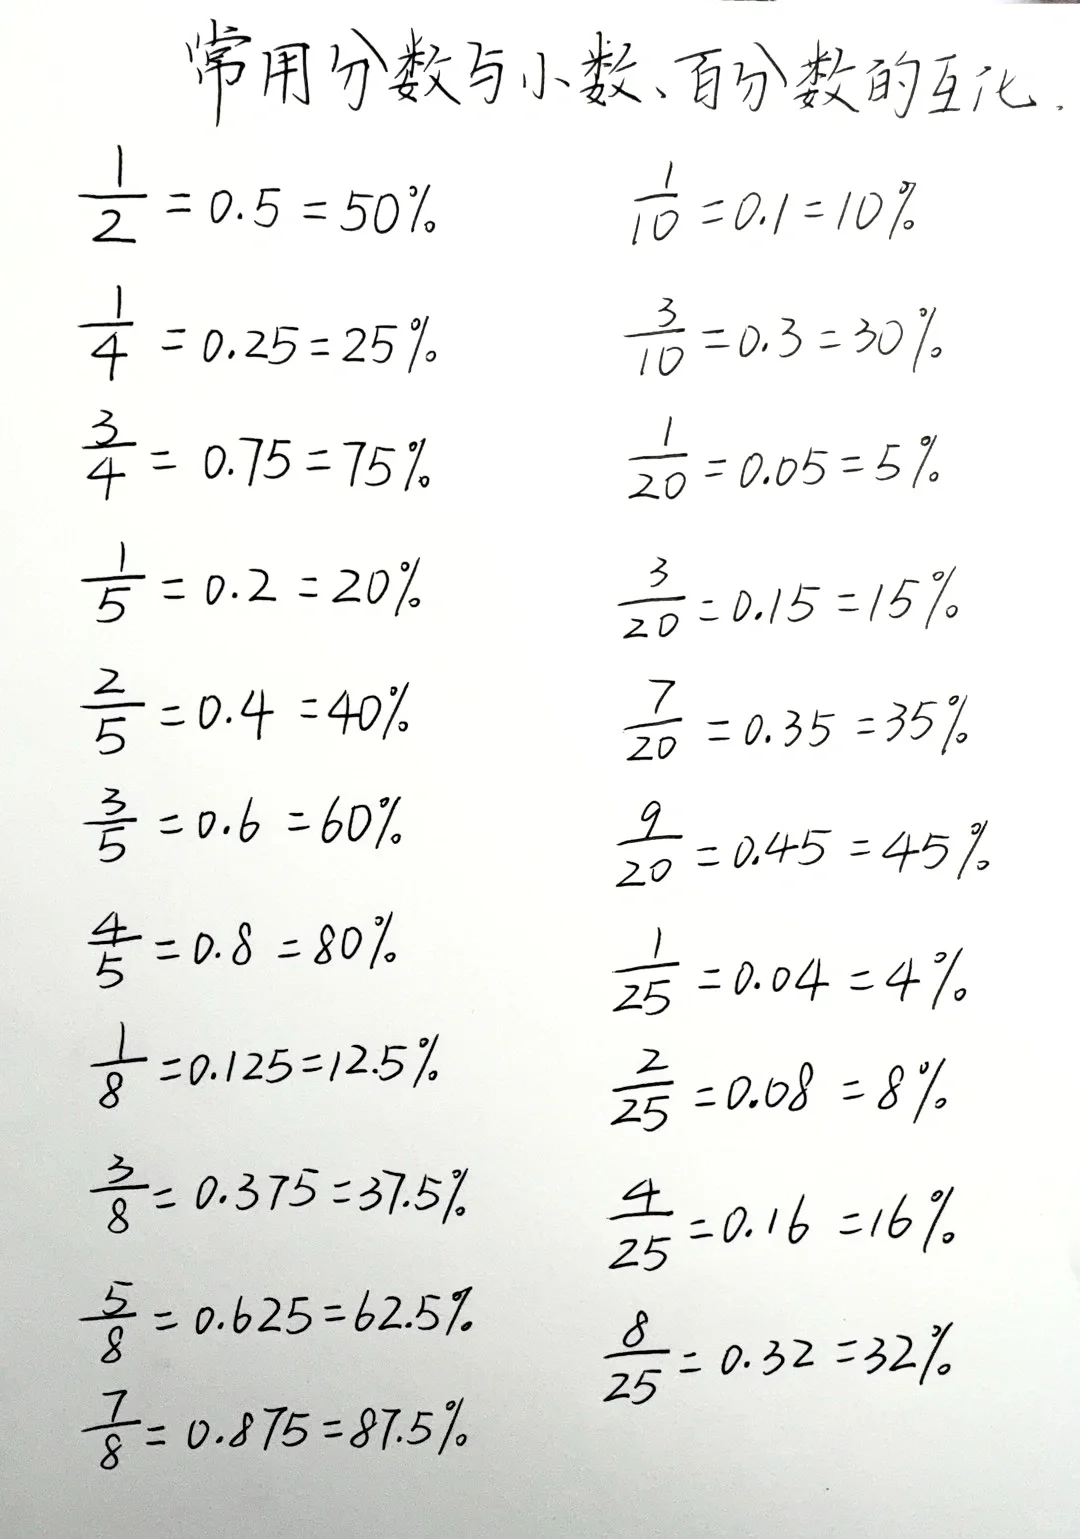 常用分数与小数、百分数的互化.
1/2 = 0.5 = 50%
1/4 = 0.25 = 25%
3/4 = 0.75 = 75%
1/5 = 0.2 = 20%
2/5 = 0.4 = 40%
3/5 = 0.6 = 60%
4/5 = 0.8 = 80%
1/8 = 0.125 = 12.5%
3/8 = 0.375 = 37.5%
5/8 = 0.625 = 62.5%
7/8 = 0.875 = 87.5%
1/10 = 0.1 = 10%
3/10 = 0.3 = 30%
1/20 = 0.05 = 5%
3/20 = 0.15 = 15%
7/20 = 0.35 = 35%
9/20 = 0.45 = 45%
1/25 = 0.04 = 4%
2/25 = 0.08 = 8%
4/25 = 0.16 = 16%
8/25 = 0.32 = 32%